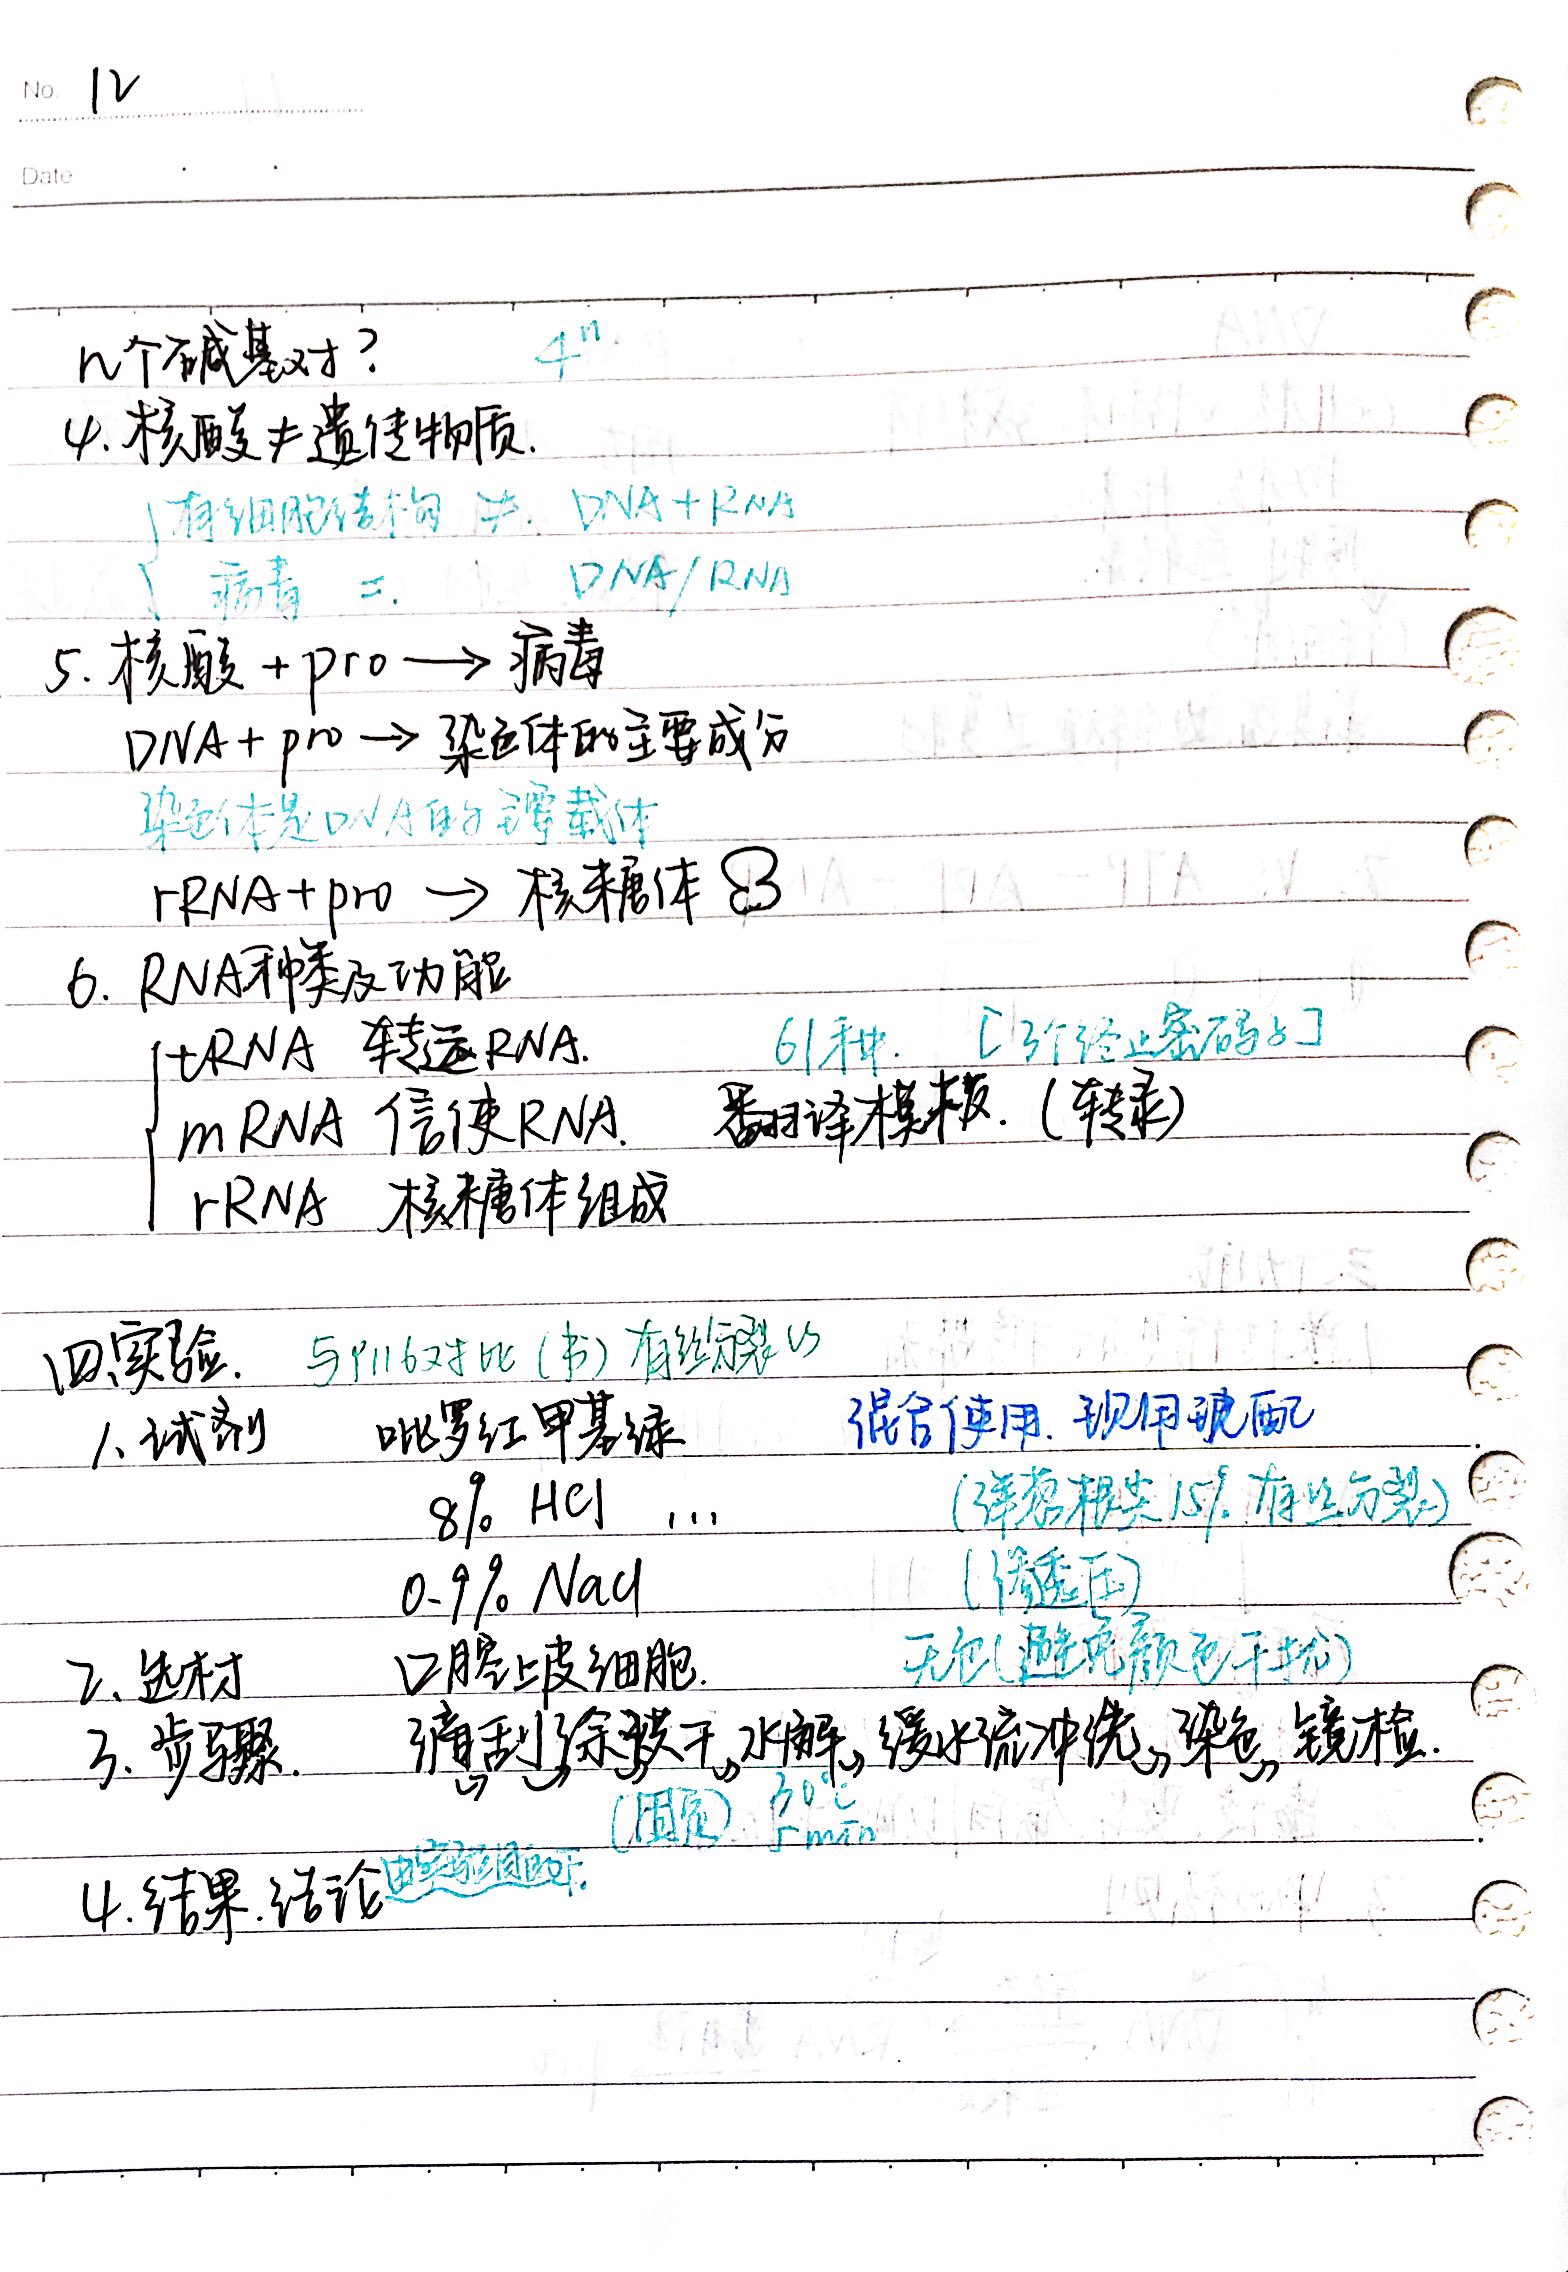 No. 12
Date
n个碱基对? 4ⁿ
4. 核酸≠遗传物质.
有细胞结构 ≠. DNA+RNA
病毒 =. DNA/RNA
5. 核酸+pro→病毒
DNA+pro→染色体的主要成分
染色体是DNA的主要载体
rRNA+pro → 核糖体
6. RNA种类及功能
tRNA 转运RNA. 61种. [3个终止密码子]
mRNA 信使RNA. 翻译模板.(转录)
rRNA 核糖体组成
四、实验. 与P116对比(书)有丝分裂
1、试剂 吡罗红甲基绿 混合使用.现用现配
8% HCl ... (洋葱根尖15% 有丝分裂)
0.9% NaCl (渗透压)
2、选材 口腔上皮细胞. 无色(避免颜色干扰)
3、步骤. 漱、刮、涂、烘干、水解、缓水流冲洗、染色、镜检.
(固定) 30℃
5min
4.结果.结论